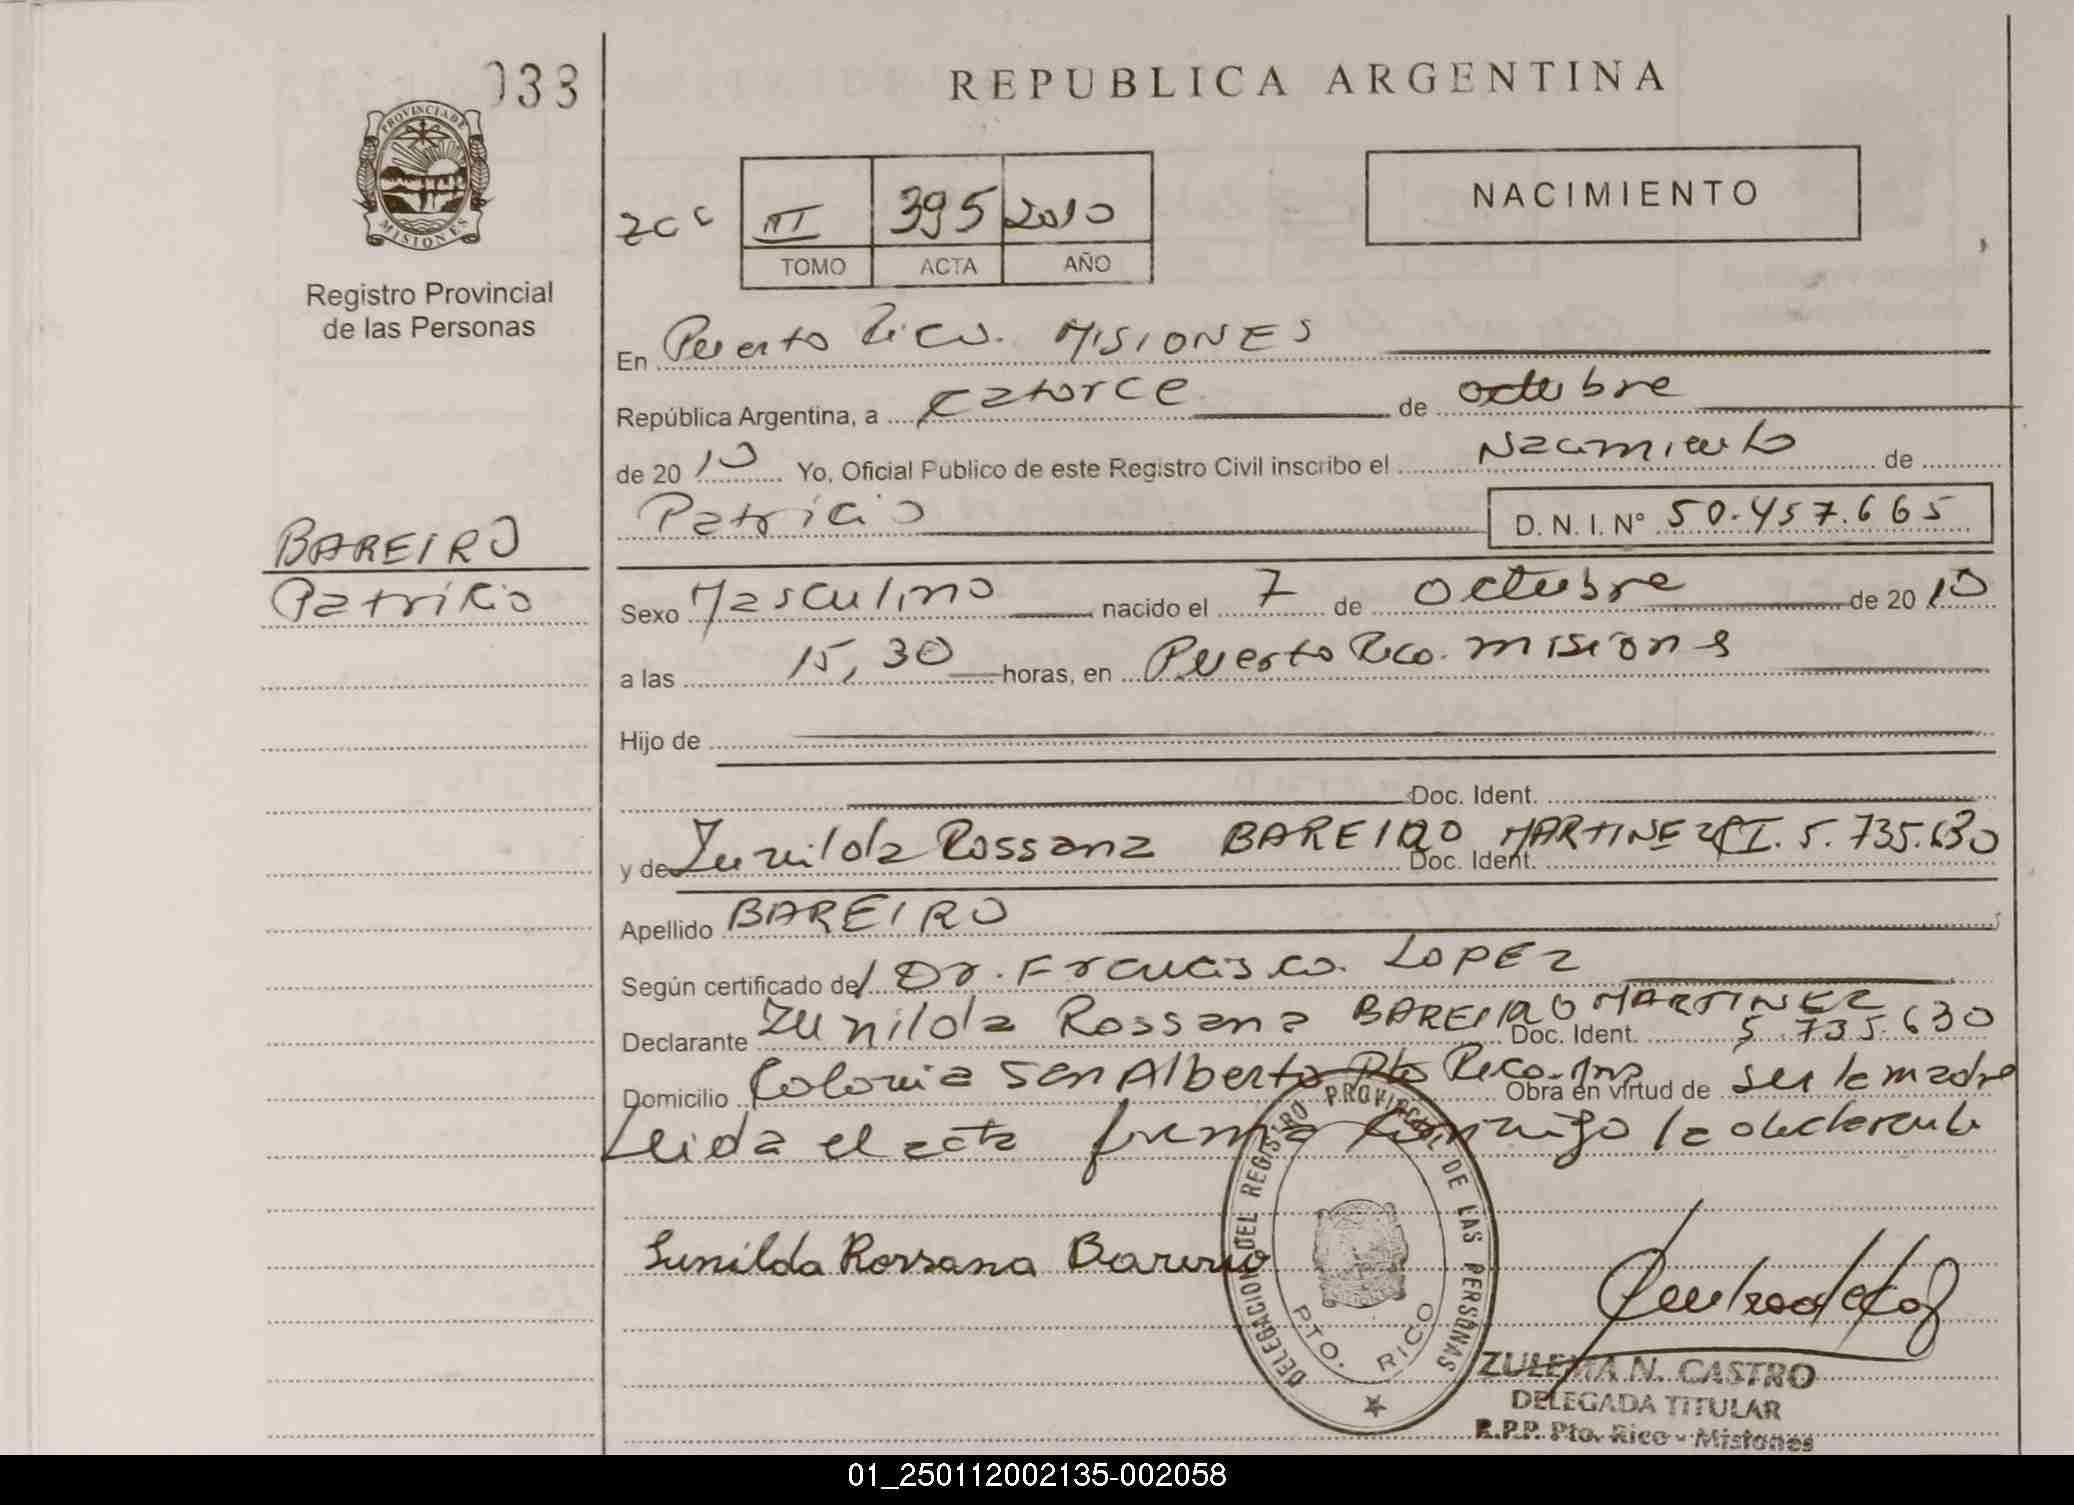 033
REPUBLICA ARGENTINA
PROVINCIA DE
MISIONES
Registro Provincial
de las Personas
NACIMIENTO
III 395 2010
TOMO ACTA AÑO
En Puerto Rico. MISIONES
República Argentina, a catorce de octubre
de 2010 Yo, Oficial Publico de este Registro Civil inscribo el Nacimiento de
Patricio D. N. I. Nº 50.457.665
BAREIRO
Patricio
Sexo Masculino nacido el 7 de octubre de 2010
a las 15,30 horas, en Puerto Rico. misiones
Hijo de
Doc. Ident.
y de Zunilda Rossana BAREIRO MARTINEZ Doc. Ident. CI. 5.735.630
Apellido BAREIRO
Según certificado del Dr. Francisco LOPEZ
Declarante Zunilda Rossana BAREIRO MARTINEZ Doc. Ident. 5.735.630
Domicilio Colonia San Alberto Pto Rico. Mnes Obra en virtud de ser la madre
Leida el acta firma conmigo la declarante
Zunilda Rossana Bareiro
DELEGACION DEL REGISTRO PROVINCIAL DE LAS PERSONAS
PTO. RICO
ZULEMA N. CASTRO
DELEGADA TITULAR
R.P.P. Pto. Rico - Misiones
01_250112002135-002058